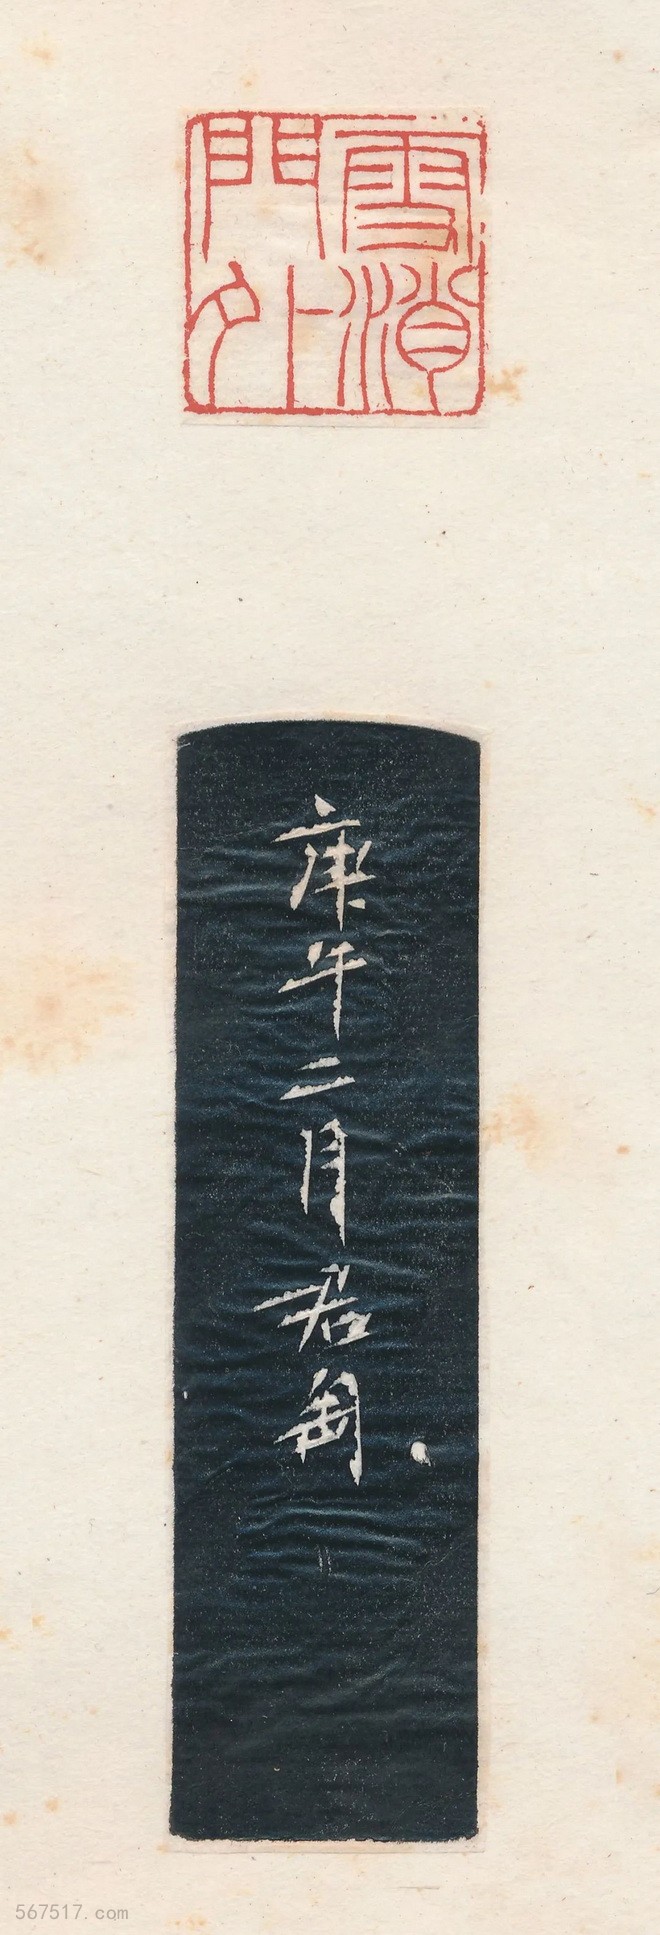 雪消
門外
庚午二月君匋
567517.com